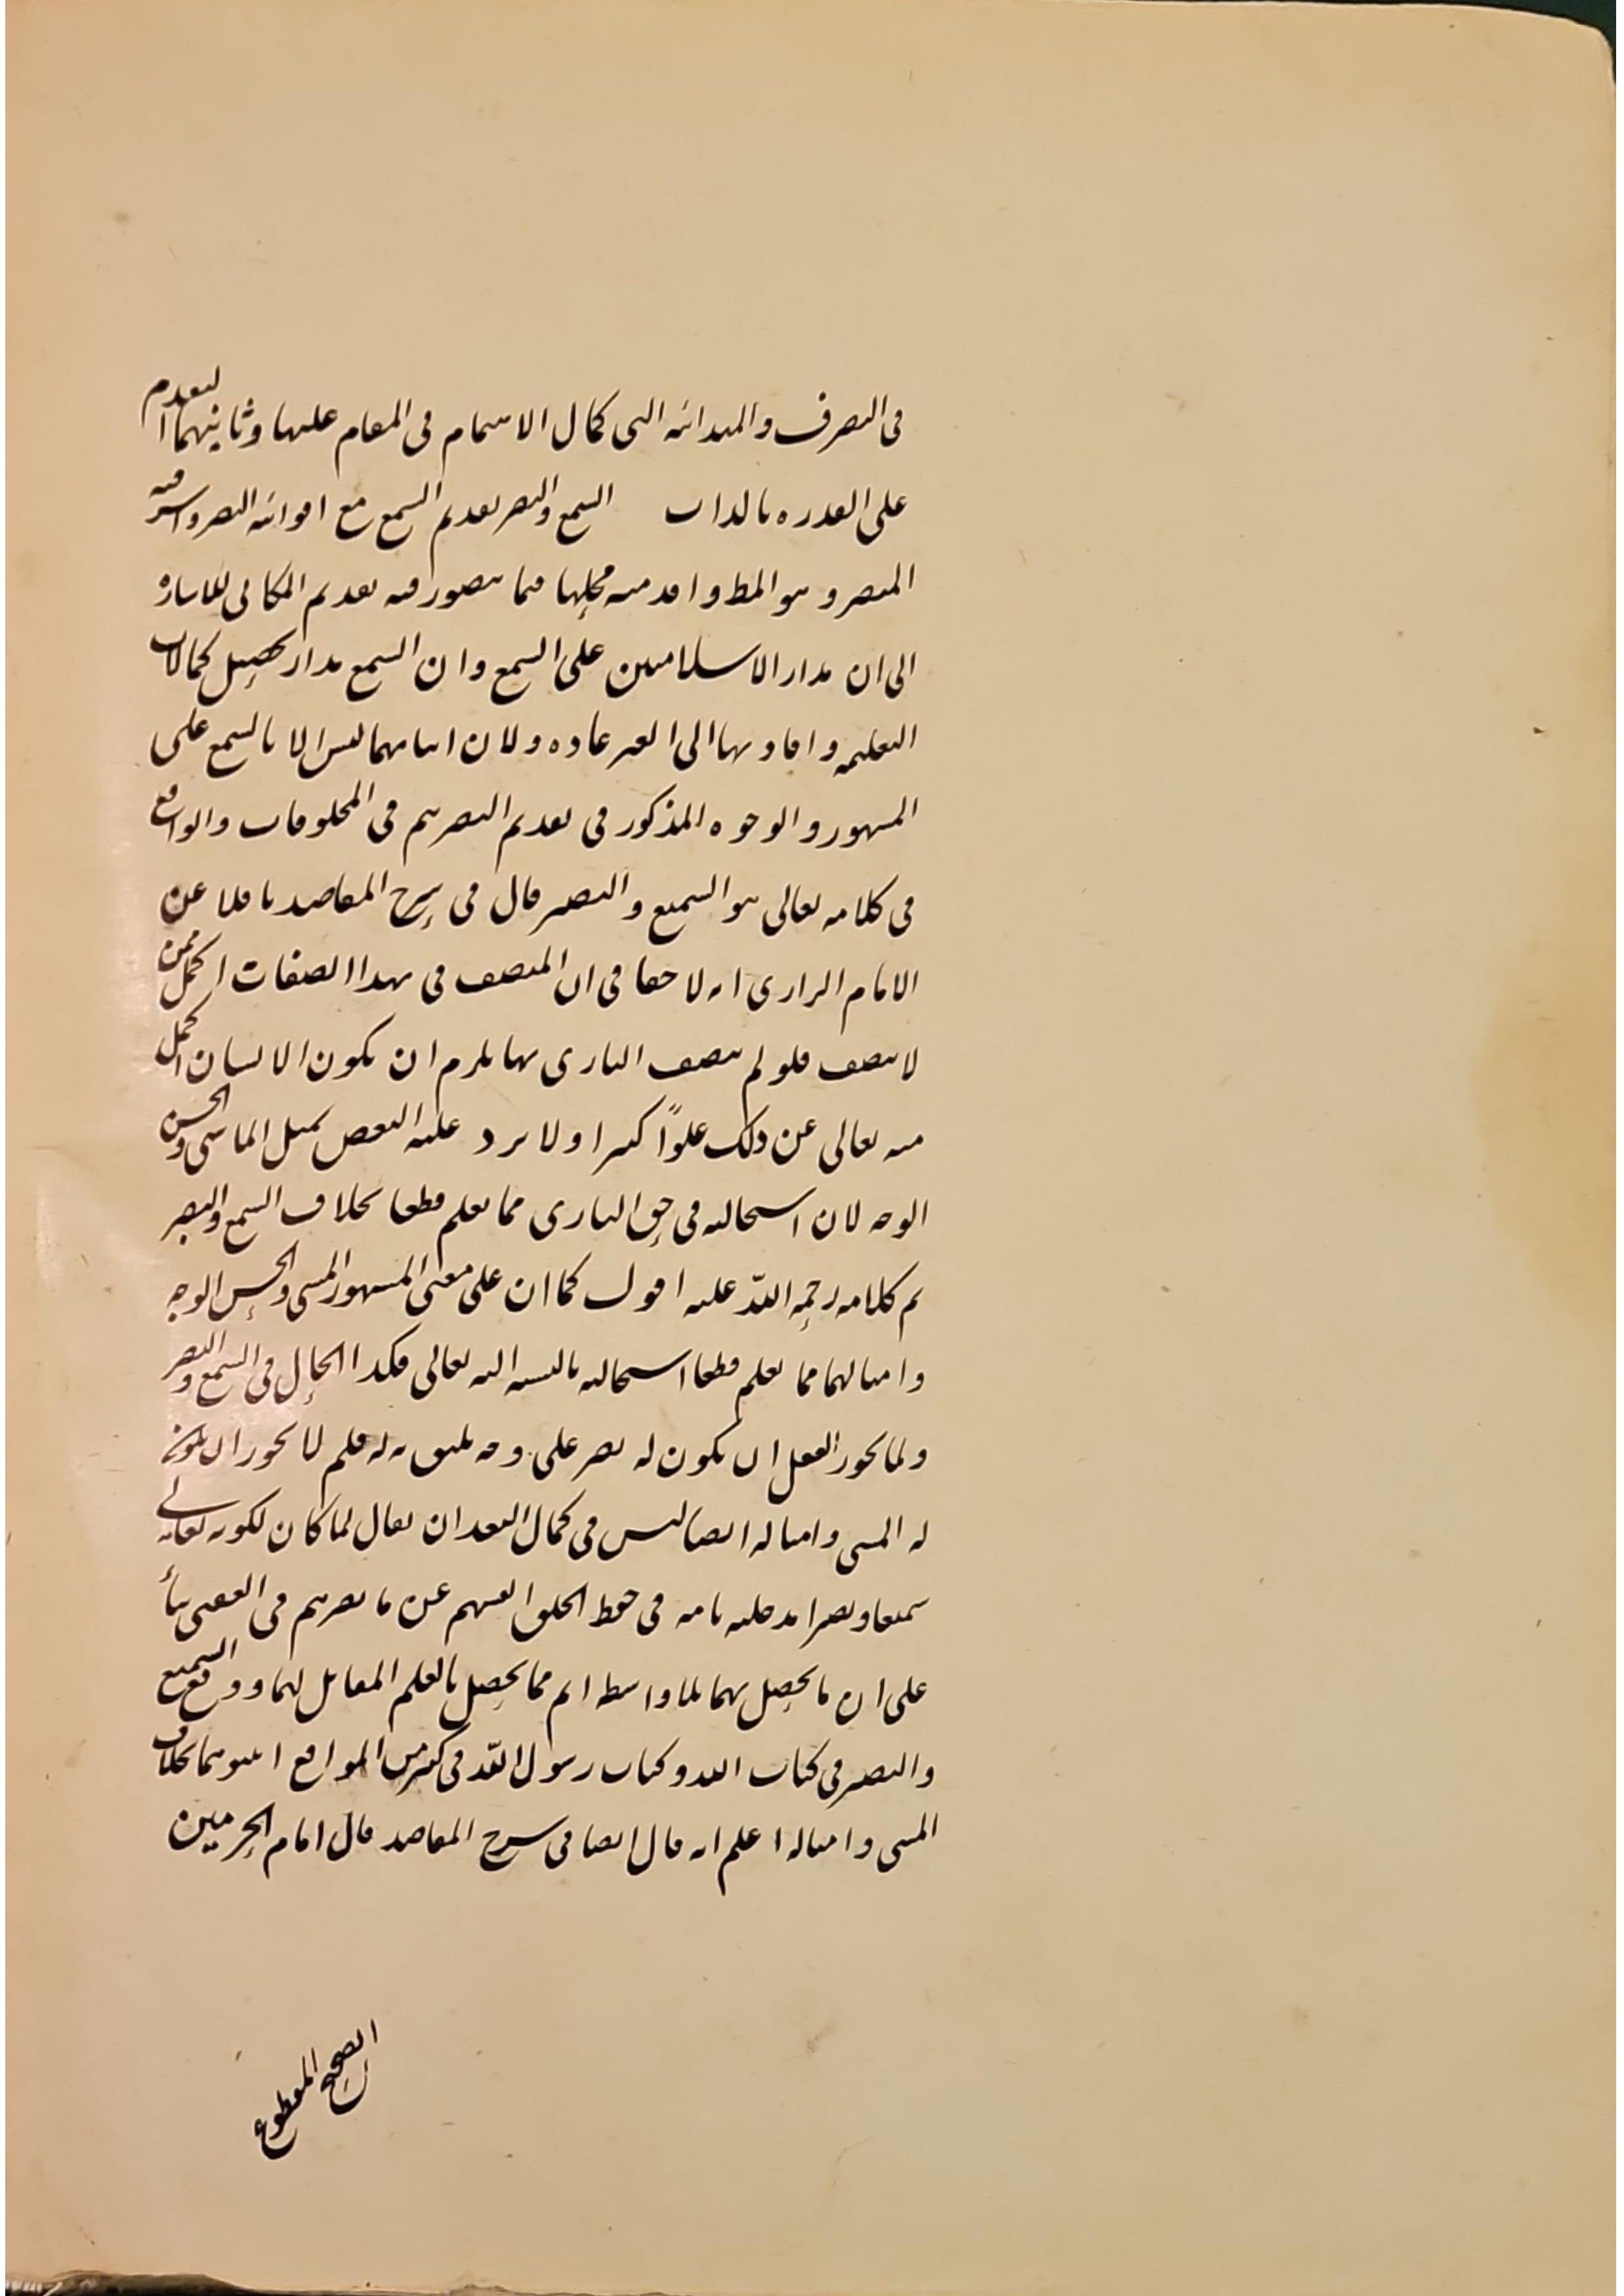 فى التصرف والمبدائية التى كمال الاهتمام فى المقام عليها وثانيهما التقدم
على القدرة بالذات السمع والبصر تقديم السمع مع اقوائية البصر واشرفية
المبصر وهو المط واقدمية محلها فيما يتصور فيه تقديم المكانى للاشارة
الى ان مدار الاسلاميين على السمع وان السمع مدار تحصيل كمالات
التعليمية وافادتها الى الغير عادة ولان اثباتهما ليس الا بالسمع على
المشهور والوجوه المذكور فى تقديم البصر يتم فى المخلوقات والواقع
فى كلامه تعالى هو السميع والبصير قال فى شرح المقاصد ناقلا عن
الامام الرازى انه لا خفا فى ان المتصف فى بهذا الصفات اكمل ممن
لا يتصف فلو لم يتصف البارى بها يلزم ان يكون الانسان اكمل
منه تعالى عن ذلك علوًا كبيرا ولا يرد عليه النقض بمثل الماشى والحسن
الوجه لان استحالته فى حق البارى مما يعلم قطعا بخلاف السمع والبصر
تم كلامه رحمة اللّه عليه اقول كما ان على معنى المشهور المشى والحسن الوجه
وامثالهما مما يعلم قطعا استحالته بالنسبة اليه تعالى فكذا الحال فى السمع والبصر
ولما يجوز العقل ان يكون له بصر على وجه يليق به له فلم لا يجوز ان يكون
له المشى وامثاله ايضا ليس فى كمال البعد ان يقال لما كان لكونه تعالى
سميعا وبصيرا مدخلية تامة فى حفظ الخلق انفسهم عن ما يضرهم فى العقبى بناء
على ان ما يحصل بهما بلا واسطة اتم مما يحصل بالعلم المقابل لهما ووقع السميع
والبصير فى كتاب الله وكتاب رسول اللّه فى كثير من المواقع اثبتوهما بخلاف
المشى وامثاله اعلم انه قال ايضا فى شرح المقاصد قال امام الحرمين
الصحيح المقطوع